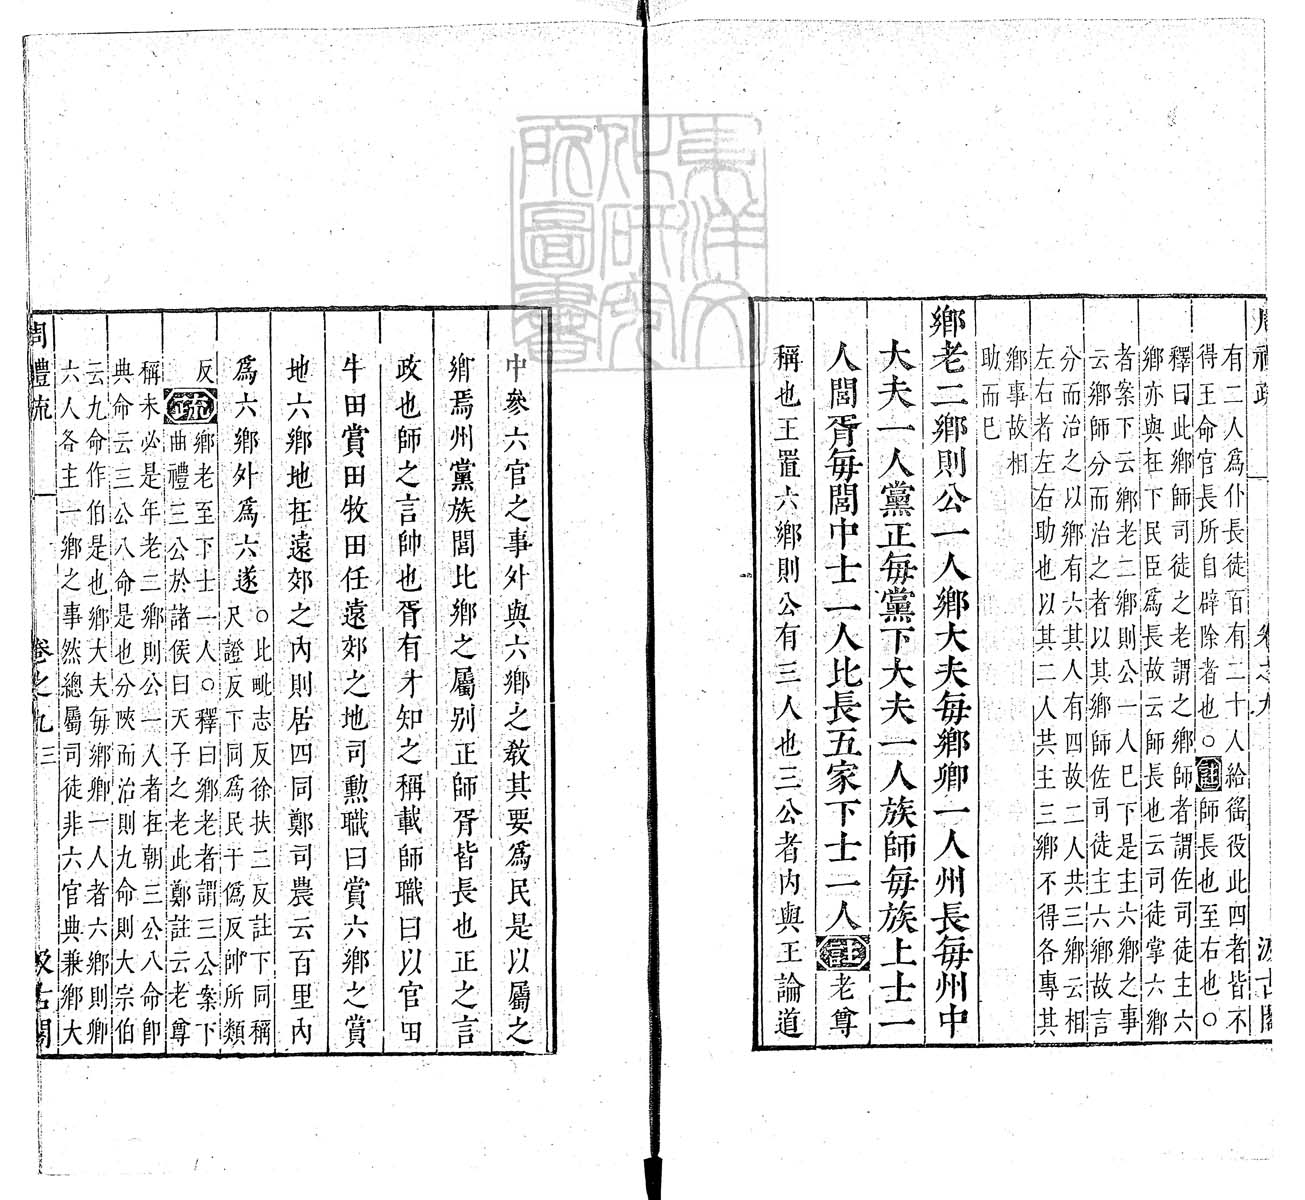 周禮疏 卷之九 汲古閣
有二人爲什長徒百有二十人給徭役此四者皆不
得王命官長所自辟除者也○註師長也至右也○
釋曰此鄉師司徒之老謂之鄉師者謂佐司徒主六
鄉亦與在下民臣爲長故云師長也云司徒掌六鄉
者案下云鄉老二鄉則公一人巳下是主六鄉之事
云鄉師分而治之者以其鄉師佐司徒主六鄉故言
分而治之以鄉有六其人有四故二人共三鄉云相
左右者左右助也以其二人共主三鄉不得各專其
鄉事故相
助而已
鄉老二鄉則公一人鄉大夫每鄉卿一人州長每州中
大夫一人黨正每黨下大夫一人族師每族上士一
人閭胥每閭中士一人比長五家下士一人註老尊
稱也王置六鄉則公有三人也三公者內與王論道
中參六官之事外與六鄉之敎其要爲民是以屬之
鄉焉州黨族閭比鄉之屬別正師胥皆長也正之言
政也師之言帥也胥有才知之稱載師職曰以官田
牛田賞田牧田任遠郊之地司勳職曰賞六鄉之賞
地六鄉地在遠郊之內則居四同鄭司農云百里內
爲六鄉外爲六遂○比毗志反徐扶二反註下同稱
尺證反下同爲民于僞反帥所類
反疏鄉老至下士一人○釋曰鄉老者謂三公案下
曲禮三公於諸侯曰天子之老此鄭註云老尊
稱未必是年老二鄉則公一人者在朝三公八命卽
典命云三公八命是也分陝而治則九命則大宗伯
云九命作伯是也鄉大夫每鄉卿一人者六鄉則卿
六人各主一鄉之事然總屬司徒非六官典兼鄉大
周禮疏 卷之九 三 汲古閣
東洋文化研究所圖書